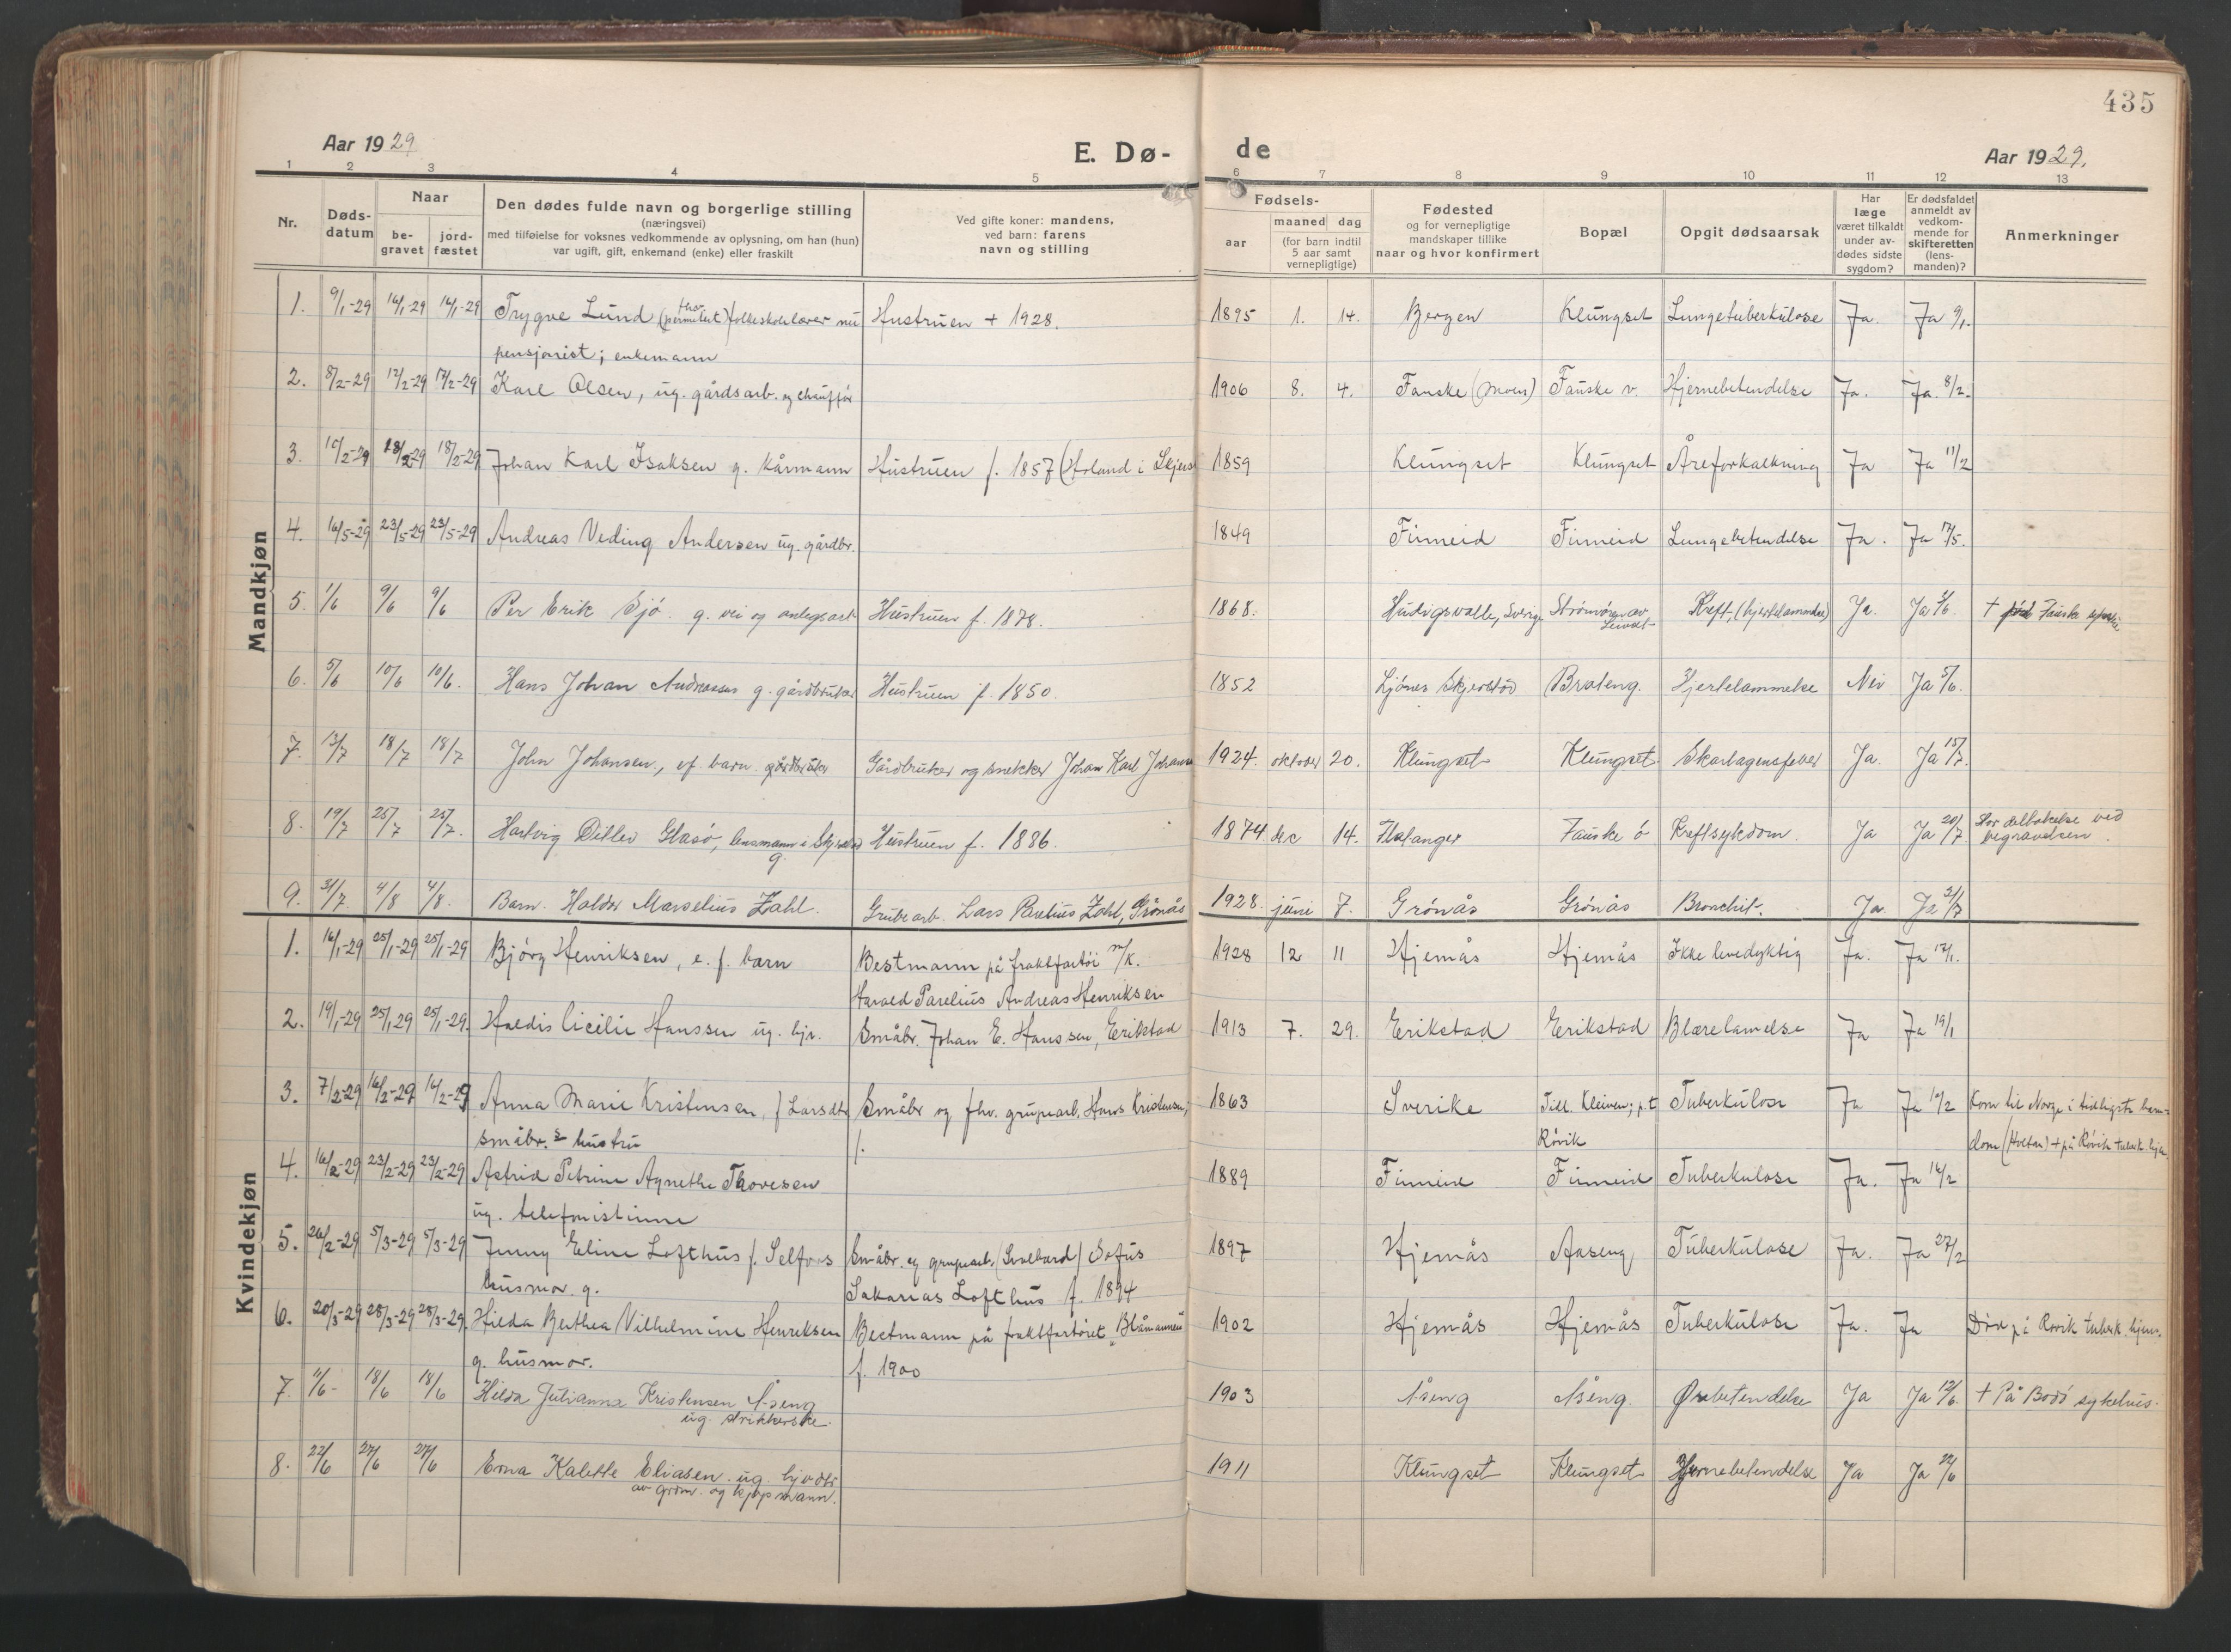 435
Aar 1929
E. Dø-
de
Aar 1929.
1 2 3 4 5 6 7 8 9 10 11 12 13
Nr.
Døds-
datum
Naar
be-
gravet
jord-
fæstet
Den dødes fulde navn og borgerlige stilling
(næringsvei)
med tilføielse for voksnes vedkommende av oplysning, om han (hun)
var ugift, gift, enkemand (enke) eller fraskilt
Ved gifte koner: mandens,
ved barn: farens
navn og stilling
Fødsels-
aar
maaned dag
(for barn indtil
5 aar samt
vernepligtige)
Fødested
og for vernepligtige
mandskaper tillike
naar og hvor konfirmert
Bopæl
Opgit dødsaarsak
Har
læge
været tilkaldt
under av-
dødes sidste
sygdom?
Er dødsfaldet
anmeldt av
vedkom-
mende for
skifteretten
(lens-
manden)?
Anmerkninger
Mandkjøn
1. 9/1-29 16/1-29 16/1-29 Trygve Lund (permitert) folkeskolelærer nu Hustruen + 1928. 1895 1. 14. Bergen Klungset Lungetuberkulose Ja. Ja 9/1.
pensjonist; enkemann
2. 8/2-29 17/2-29 17/2-29 Karl Olsen, ug. gårdsarb. og chauffør 1906 8. 4. Fauske (Moen) Fauske v. Hjernebetendelse Ja. Ja. 8/2.
3. 10/2-29 18/2-29 18/2-29 Johan Karl Isaksen g. kårmann Hustruen f. 1857 (Holand i Skjerst 1859 Klungset Klungset Åreforkalkning Ja Ja 11/2
4. 16/5-29 23/5-29 23/5-29 Andreas Veding Andersen ug. gårdbr. 1849 Finneid Finneid Lungebetendelse Ja. Ja 17/5.
5. 1/6 9/6 9/6 Per Erik Sjö g. vei og anlegsarb Hustruen f. 1878. 1868. Hudigsvalle, Sverige Kreft, (hjertelammelse) Ja. Ja 3/6. + Fauske
6. 5/6 10/6 10/6. Hans Johan Andreassen g. gårdbruker Hustruen f. 1850. 1852 Ljönes Skjerstad Brateng. Hjertelammelse Nei Ja 5/6.
7. 13/7 18/7 18/7 John Johansen, ef. barn gårdbruker Gårdbruker og snekker Johan Karl Johans 1924. oktober 20. Klungset Klungset Skarlagensfeber Ja. Ja 15/7.
8. 19/7 25/7 25/7. Hartvig Ditlev Glasö, lensmann i Skjerstad Hustruen f. 1886. 1874 dec 14. Flatanger Fauske ö Kreftsykdom. Ja Ja 20/7 Stor deltakelse ved
g. begravelsen.
9. 31/7. 4/8 4/8. Barn Haldor Marselius Zahl. Grubearb. Lars Paulius Zahl, Grönås 1928. juni 7. Grönås Grönås Bronchit. Ja Ja 31/7
Kvindekjøn
1. 16/1-29 25/1-29 25/1-29 Bjørg Henriksen, e. f. barn Bestmann på fraktfartöi m/k. 1928 12 11 Hjemås Hjemås Ikke levedyktig Ja. Ja 17/1.
Harald Parelius Andreas Henriksen
2. 19/1-29 25/1 29 25/1-29. Haldis Cicilie Hanssen ug. hjv. Småbr. Johan E. Hanssen, Erikstad 1913 7. 29. Erikstad Erikstad Blærelamelse Ja Ja 19/1
3. 7/2-29 16/2-29 16/2-29 Anna Marie Kristensen, f Larsdtr Småbr og fhv. grupearb, Hans Kristensen, 1863 Sverike Till. Kleiven; p.t Tuberkulose Ja Ja 10/2 Kom til Norge i tidligste barn-
småbr.s hustru f. Rövik dom (Holtan) + på Rövik tuberk. hjem.
4. 16/2-29 23/2-29 23/2-29 Astrid Petrine Agnethe Thovesen 1889 Finneid Finneid Tuberkulose Ja. Ja 16/2
ug. telefonistinne
5. 26/2-29 5/3-29 5/3-29 Jenny Eline Lofthus f. Selfors Småbr. og grupearb. (Svalbard) Sofus 1897 Hjemås Aaseng Tuberkulose Ja. Ja 27/2
husmor g. Sakarias Lofthus f. 1894
6. 20/3-29 28/3-29 28/3-29. Hilda Berthea Vilhelmine Henriksen Bestmann på fraktfartöiet „Blåmannen 1902 Hjemås Hjemås Tuberkulose Ja. Ja Död på Rövik tuberk. hjem.
g. husmor. f. 1900
7. 11/6- 18/6 18/6 Hilda Julianna Kristensen Åseng 1903 Åseng Åseng. Ørebetendelse Ja Ja 12/6. + På Bodö sykehus.
ug. strikkerske.
8. 22/6 27/6 27/6 Erna Kalette Eliasen. ug. hj.v. dtr 1911 Klungset Klungset Hjernebetendelse Ja Ja 22/6
av grdm. og kjøpmann.